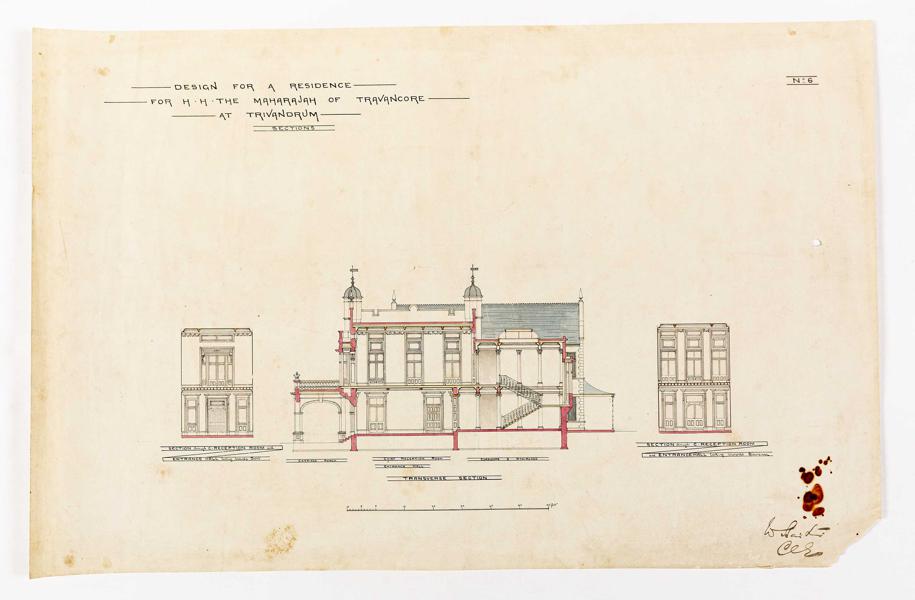 DESIGN FOR A RESIDENCE
FOR H·H·THE MAHARAJAH OF TRAVANCORE
AT TRIVANDRUM
SECTIONS
No 6
SECTION through C. RECEPTION ROOM and
ENTRANCE HALL looking towards
CARRIAGE PORCH
CHIEF RECEPTION ROOM
ENTRANCE HALL
CORRIDORS & STAIRCASE
TRANSVERSE SECTION
SECTION through C. RECEPTION ROOM
and ENTRANCE HALL looking towards